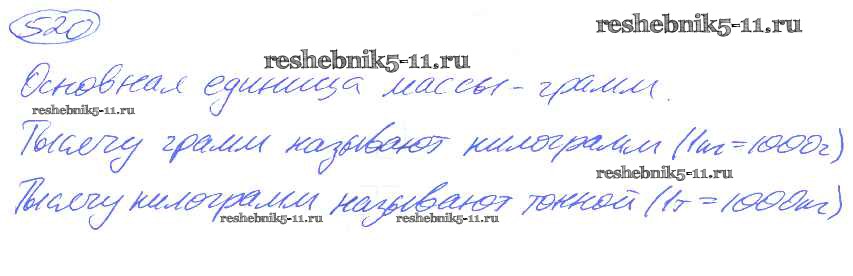 520
reshebnik5-11.ru
reshebnik5-11.ru
Основная единица массы - грамм.
reshebnik5-11.ru
Тысячу грамм называют килограмм (1кг=1000г)
reshebnik5-11.ru
Тысячу килограмм называют тонной (1т=1000кг)
reshebnik5-11.ru
reshebnik5-11.ru